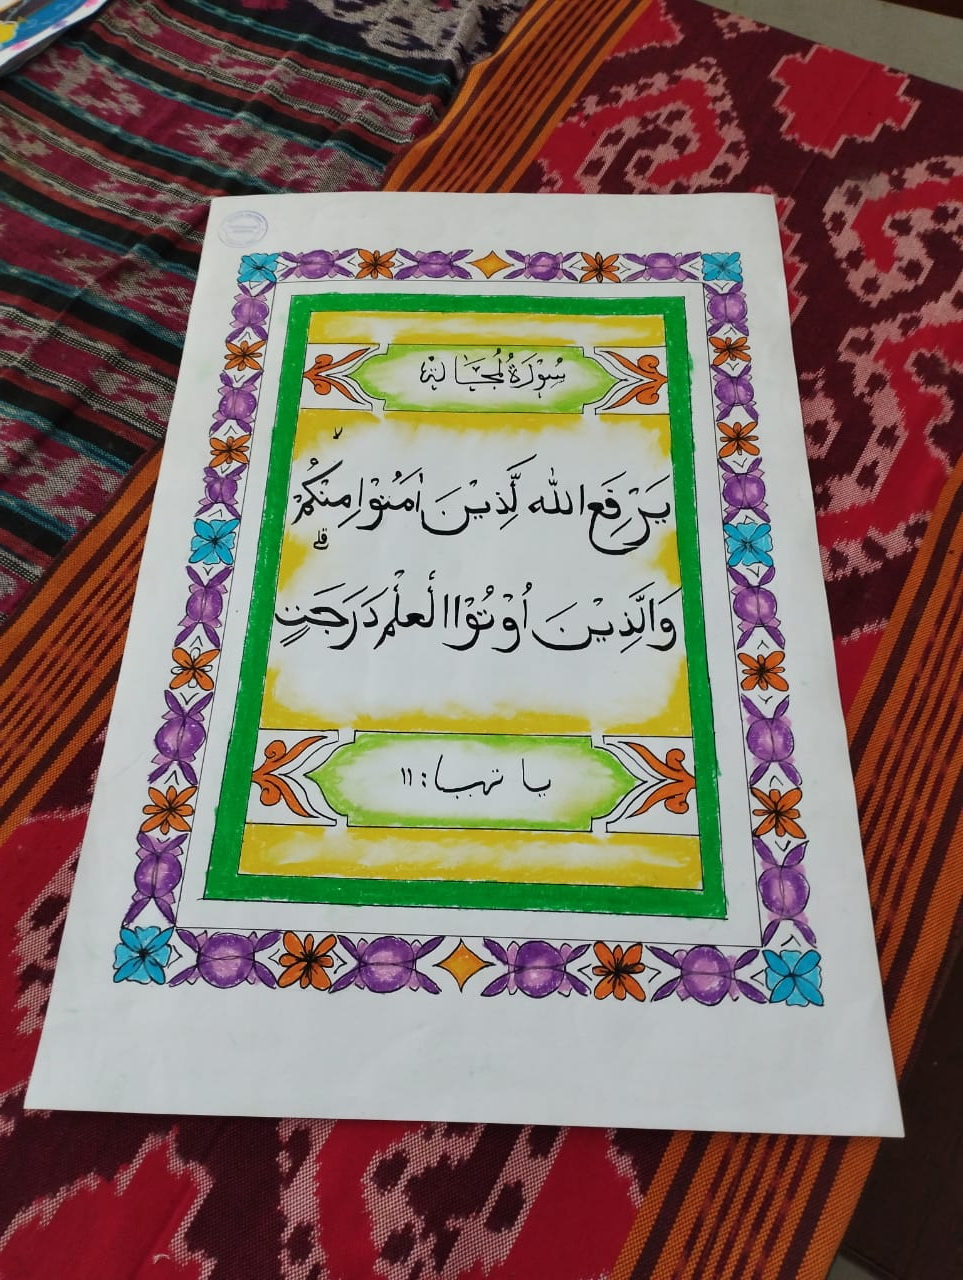 سُوْرَةُ لْمُجَالة
يَرْفَعِ اللّٰه لَّذِيْنَ اٰمَنُوْا مِنْكُمْ
وَالَّذِيْنَ اُوْتُوْا الْعلْمَ دَرَجَتٍ
يا تهبا: ١١